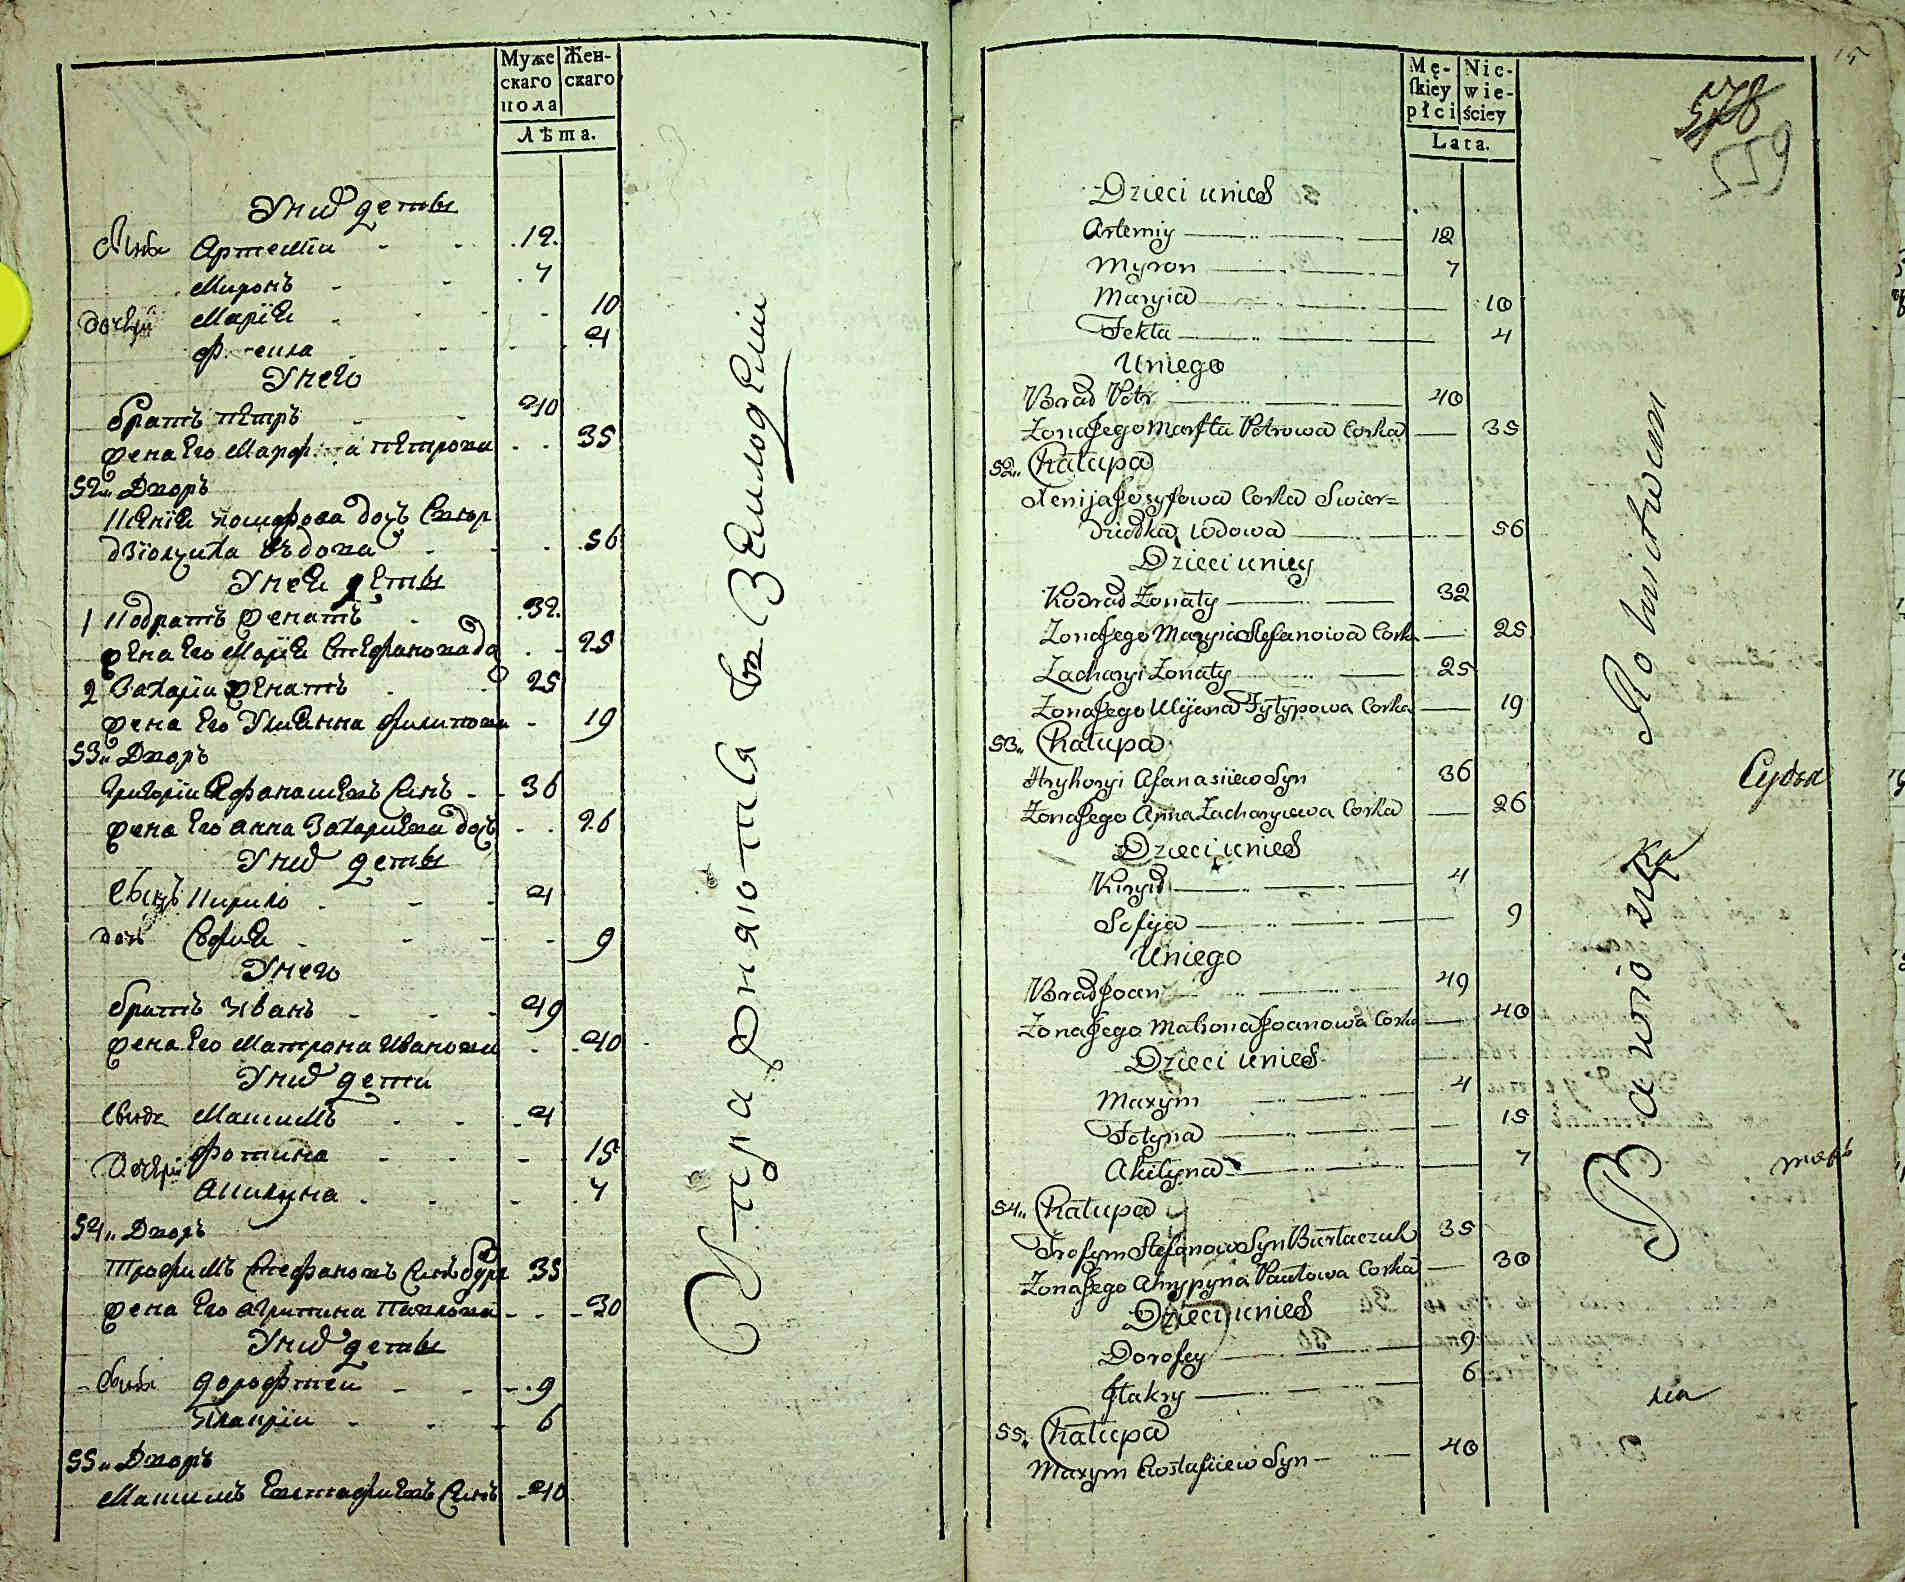 Муже
скаго
пола
Жен-
скаго
Лѣта.
У них дети
Сыны Артемiи 12.
Миронъ 7
дочери Марiя 10
4
У него
братъ Петръ 40
жена Его Марфа Петрова 35
52„ Дворъ
Ксенiя Іосифова дочь Свѣр
дзiолушка вдова 56
У неи дети
1 Кодратъ женатъ 32.
жена Его Марiя Стефанова до 25
2 Захарiи женатъ 25
жена Его Улиянна Филипова 19
53„ Дворъ
Григорiи Афанасиевъ Сынъ 36
жена Его Анна Захариева дочь 26
У них дети
Сынъ Кирило 4
дочь София 9
У него
братъ Иванъ 49
жена Его Матрона Иванова 40
У них дети
Сынъ Максимъ 4
Фотина 15
Дочери Акилина 7
54„ Дворъ
Трофимъ Стефановъ Сынъ бурл 35
жена Его Агрипина Павлова 30
У них дети
Сыны дорофтеи 9
Иларiи 6
55„ Дворъ
Максимъ Евстафиевъ Сынъ 40
Упражняются въ Земледелiи
15
578
559
Mę-
ſkiey
płci
Nie-
wie-
ściey
Lata.
Dzieci unich
Artemiy 12
Myron 7
Maryia 10
Tekla 4
Uniego
Brad Potr 40
Zona Jego Marfta Potrowa Corka 35
52„ Chałupa
Xenija Josyfowa Corka Swier=
dziołka wdowa 56
Dzieci uniey
Kodrad Żonaty 32
Zona Jego Maryia Stefanowa Cork 25
Zacharyi Żonaty 25
Zona Jego Ulijana Fyłypowa Corka 19
53„ Chałupa
Hryhoryi Afanasiiew Syn 36
Żona Jego Anna Zacharyiewa Corka 26
Dzieci unich
Kiryło 4
Sofija 9
Uniego
Brad Joan 49
Zona Jego Matrona Joanowa Corka 40
Dzieci unich
Maxym 4
Fotyna 15
Akilyna 7
54„ Chałupa
Trofym Stefanow Syn Burłaczuk 35
Żona Jego Ahrypyna Pawłowa Corka 30
Dzieci unich
Dorofey 9
Jłakry 6
55„ Chałupa
Maxym Ewstafiiew Syn 40
Bawią się Rolnictwem
Судья